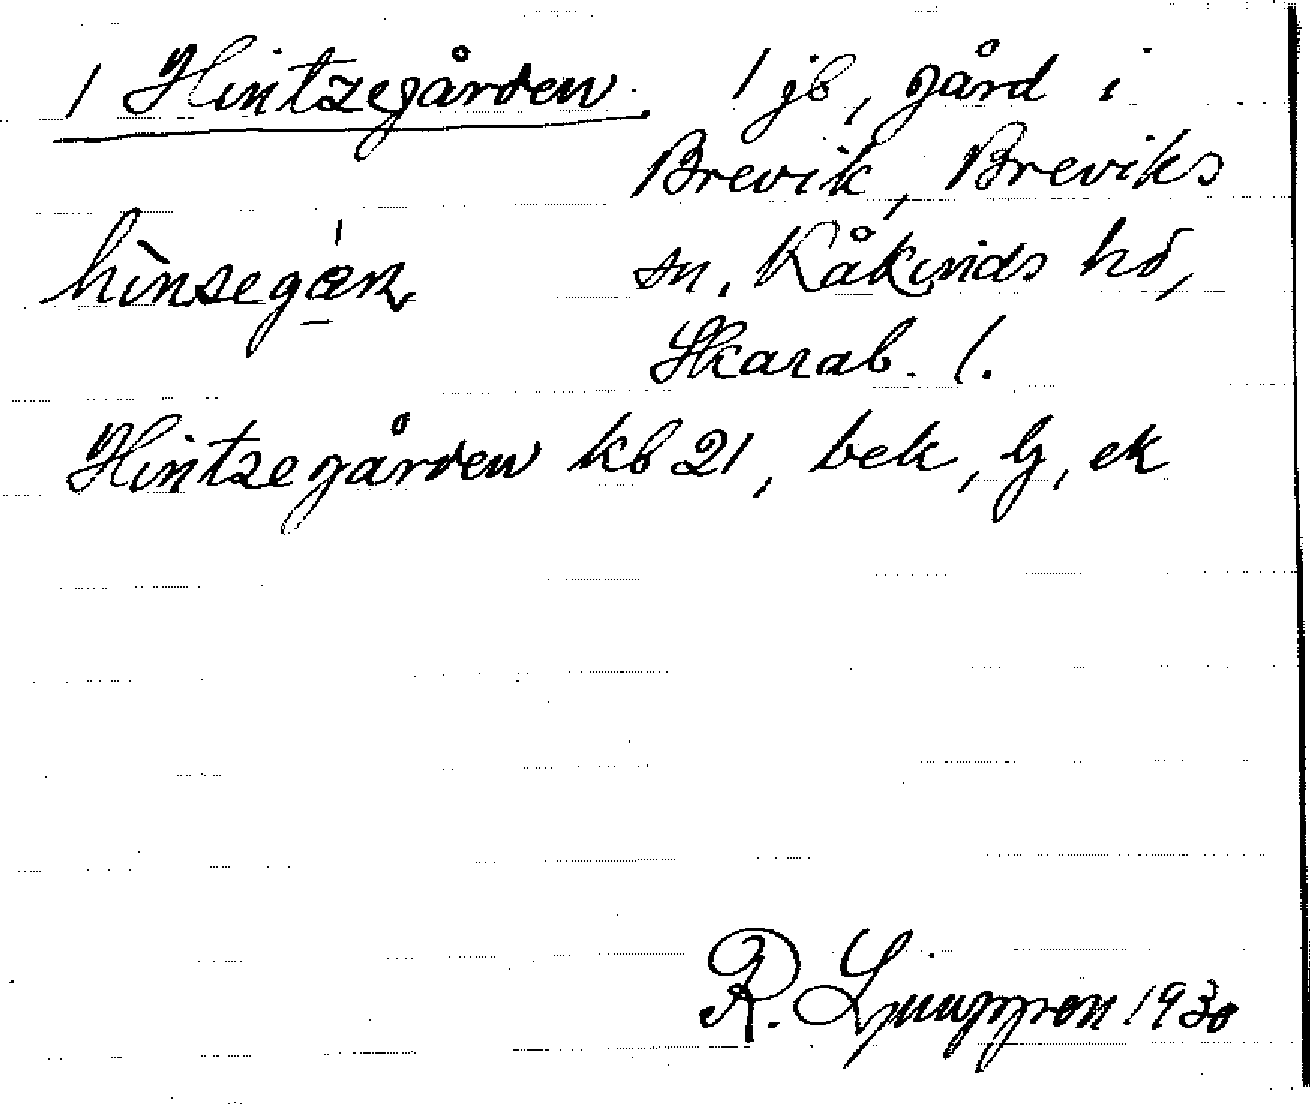 1 Hintzegården. 1 jb, gård i
Brevik, Breviks
hìnsegán sn. Kåkinds hd,
Skarab. l.
Hintzegården kb 21, bek, Lj, ek
R. Ljunggren 1930